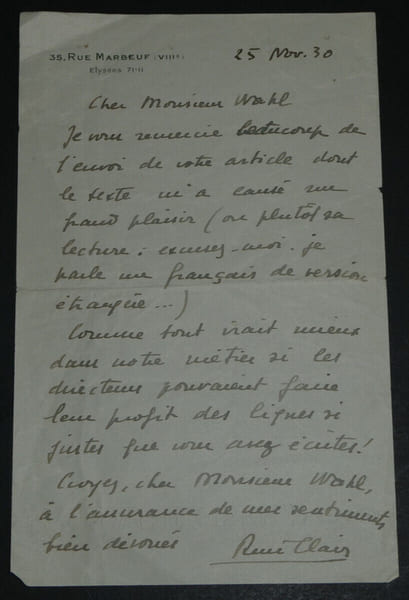 35, RUE MARBEUF (VIIIe)
Elysées 71-11
25 Nov. 30
Cher Monsieur Wahl
Je vous remercie beaucoup de
l'envoi de votre article dont
le texte m'a causé un
grand plaisir (ou plutôt sa
lecture : excusez-moi. je
parle un français de version
étrangère...)
Comme tout irait mieux
dans notre métier si les
directeurs pouvaient faire
leur profit des lignes si
justes que vous avez écrites !
Croyez, cher Monsieur Wahl,
à l'assurance de mes sentiments
bien dévoués
René Clair